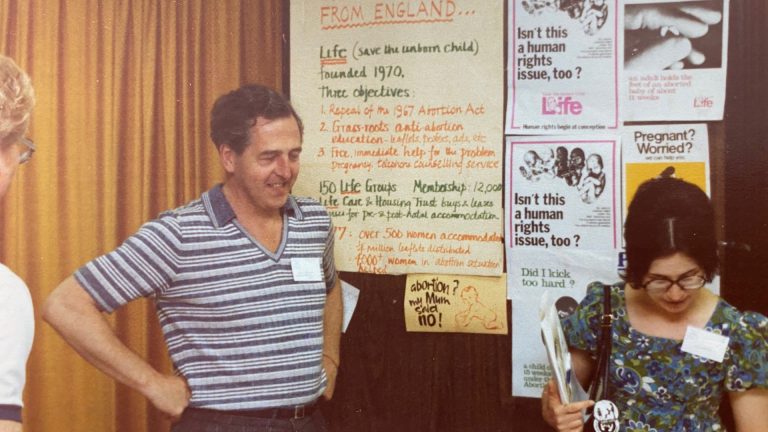 FROM ENGLAND...
Life (save the unborn child)
founded 1970.
Three objectives:
1. Repeal of the 1967 Abortion Act
2. Grass-roots anti-abortion
education - leaflets, posters, ads, etc.
3. Free, immediate help for the problem
pregnancy, telephone counselling service
150 Life Groups Membership: 12,000
Life Care & Housing Trust buys & leases
for pre & post-natal accommodation
77: over 500 women
million leaflets distributed
women in abortion situation
helped
abortion?
my Mum
said
no!
Isn't this
a human
rights
issue, too?
Life
Human rights begin at conception
an adult holds the
feet of an aborted
baby of about
weeks
Life
Isn't this
a human
rights
issue, too?
Pregnant?
Worried?
we can help
Did I kick
too hard?
a child